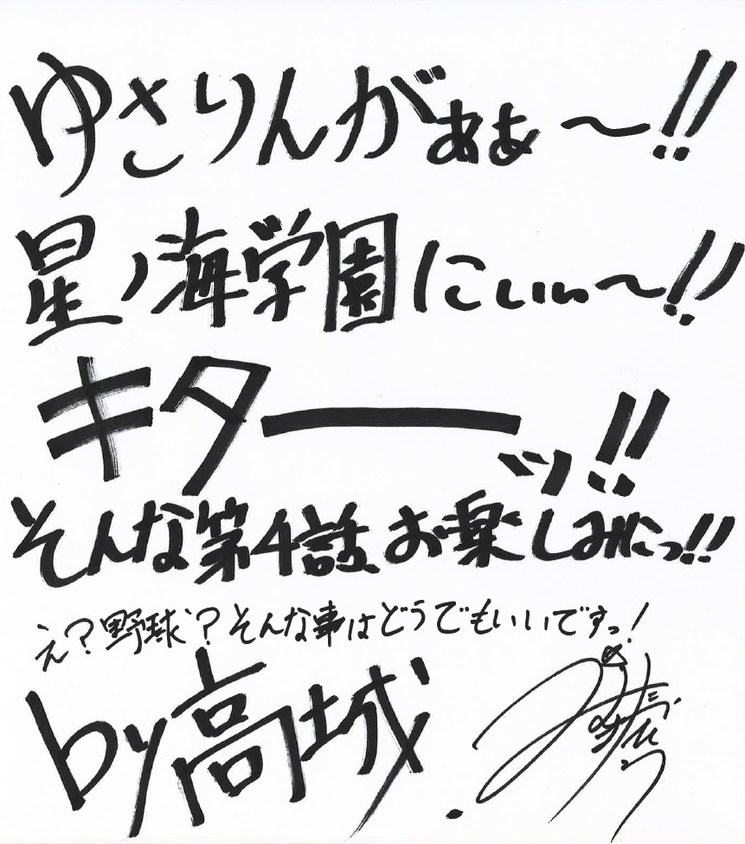 ゆさりんがぁぁ～!!
星ノ海学園にぃぃ～!!
キターーッ!!
そんな第4話、お楽しみにっ!!
え?野球?そんな事はどうでもいいですっ!
by高城